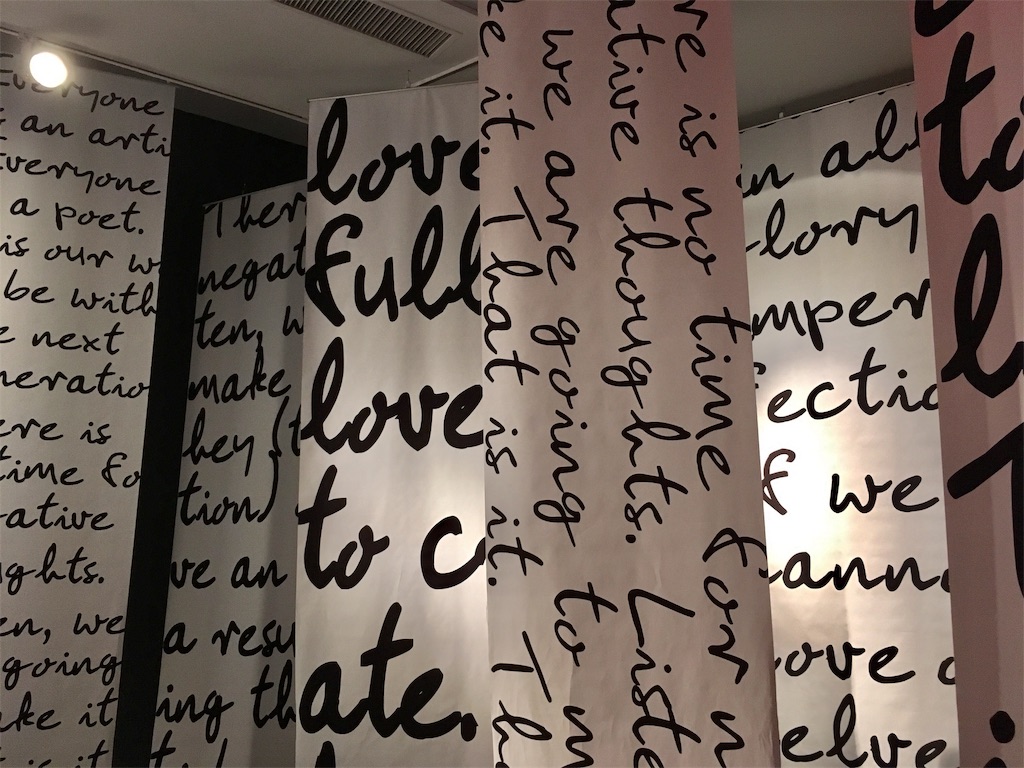 Everyone
an arti
Everyone
a poet.
is our w
be with
next
neratio
ere is
time fo
ative
ghts.
en, we
going
ake it
t is it
Ther
negat
ten, w
make
they (t
tion)
ve an
a resu
ing th
love
full
love
to c
ate.
ke it. That is it. Th
we are going to m
ative thoughts. Liste
re is no time for n
in all
glory
imper
fectio
If we
canno
love o
elve
to
l
T
i